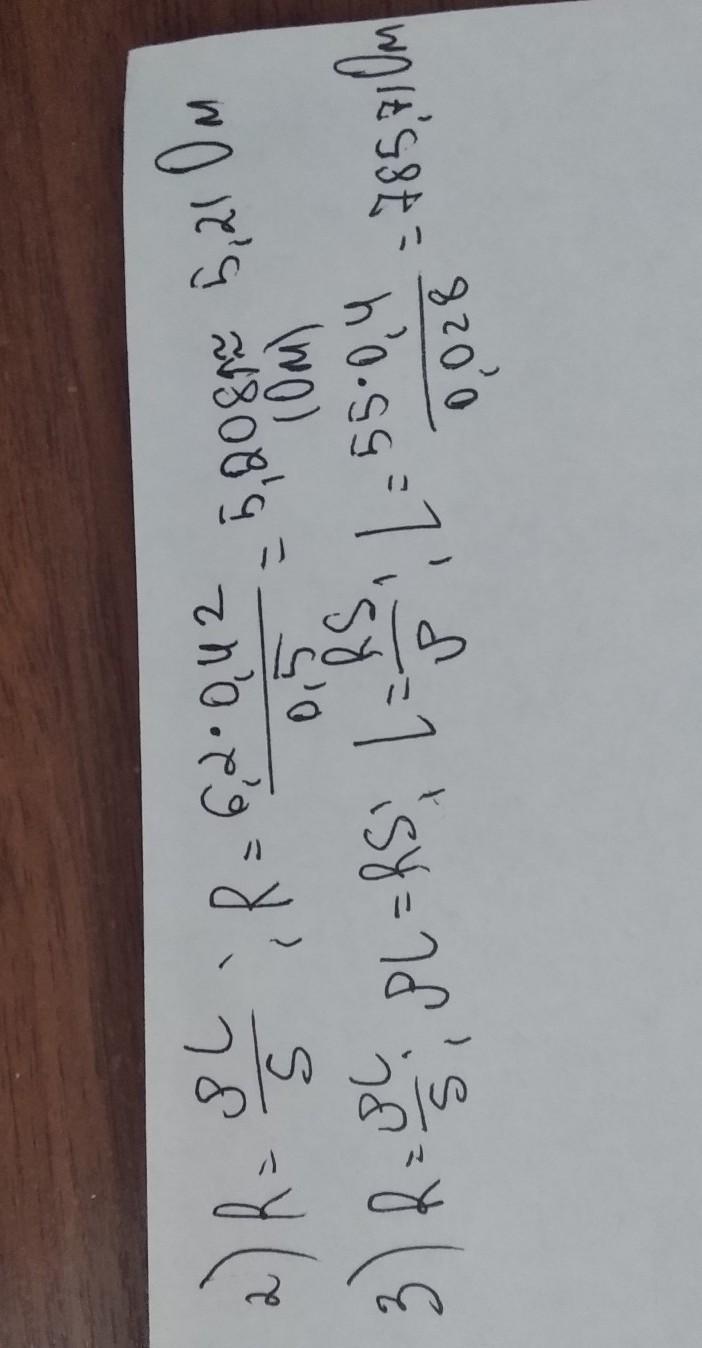 2) R = ρL/S ; R = 6,2·0,42/0,5 = 5,208 ≈ 5,21 Ом
(Ом)
3) R = ρL/S ; ρL = RS ; L = RS/ρ ; L = 55·0,4/0,028 = 785,71 Ом